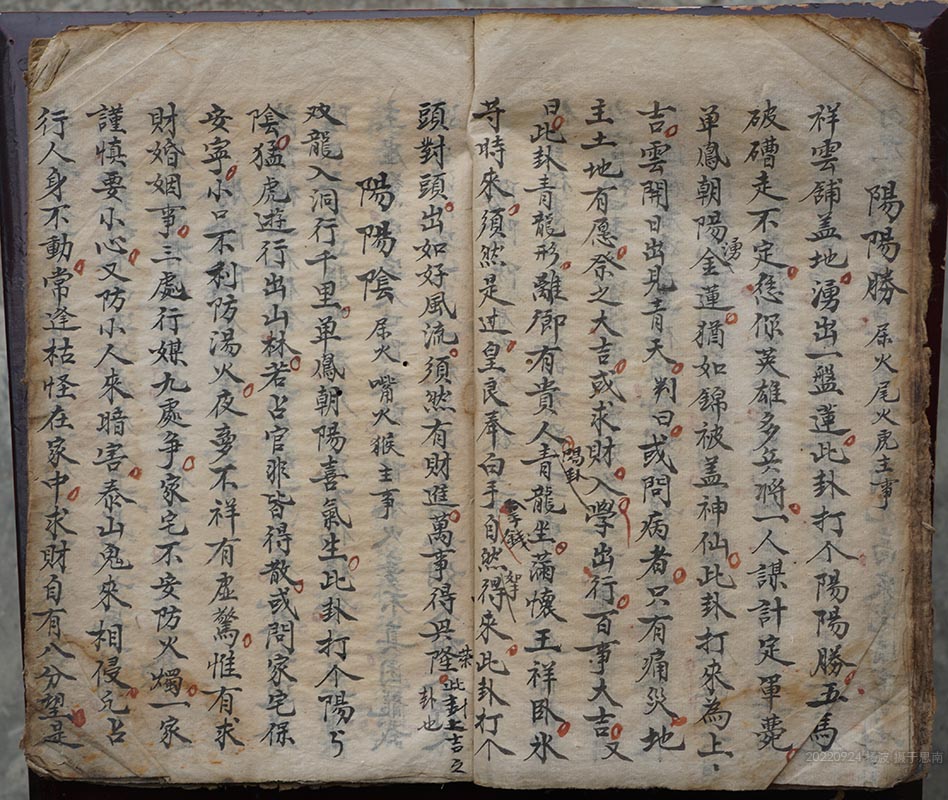 陽陽勝 尿火尾火虎主事
祥雲舖盖地湧出一盤蓮此卦打个陽陽勝五馬
破磄走不定恁你英雄多兵將一人謀計定軍
单鳳朝陽金蓮湧猶如錦被盖神仙此卦打來為上
吉雲開日出見青天判曰或問病者只有痛災地
主土地有愿祭之大吉或求財入學出行百事大吉又
曰此卦青龍形離御有貴人青龍坐滿懷王祥卧氷
時來須然是过皇良奉白手自然得來此卦打个
頭對頭出如好風流須然有財進萬事得興隆此卦上吉之
卦也
陽陽陰 尿火嘴火猴主事
双龍入洞行千里单鳳朝陽喜氣生此卦打个陽
陰猛虎遊行出山林若占官非皆得散或問家宅保
安寧小口不利防湯火夜夢不祥有虚驚惟有求
財婚姻事三處行媒九處争家宅不安防火燭一家
謹慎要小心又防小人來暗害泰山鬼來相侵占
行人身不動常逢枯怪在家中求財自有八分望是
20220924 杨波 摄于思南